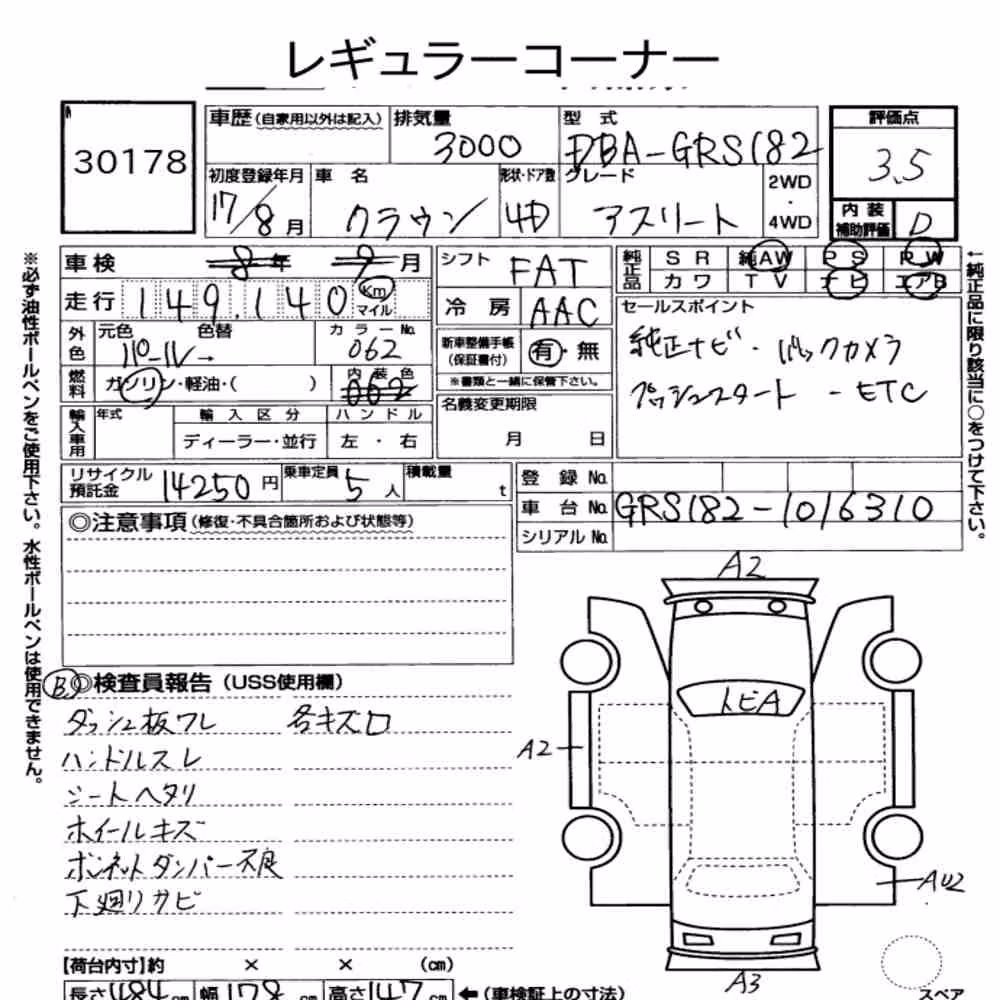 レギュラーコーナー
30178
車歴(自家用以外は記入) 排気量 3000 型式 DBA-GRS182
評価点 3.5
初度登録年月 17/8月 車名 クラウン 形状・ドア数 4D グレード アスリート 2WD・4WD
内装補助評価 D
車検 8年 9月
シフト FAT
純正品 SR 純AW PS PW
カワ TV ナビ エアB
走行 149,140 Km マイル
冷房 AAC
セールスポイント
純正ナビ・バックカメラ
プッシュスタート - ETC
外色 元色 パール→ 色替 カラーNo. 062
新車整備手帳(保証書付) 有・無
※書類と一緒に保管下さい。
燃料 ガソリン・軽油・( ) 内装色 062
名義変更期限 月 日
輸入車用 年式 輸入区分 ハンドル
ディーラー・並行 左・右
リサイクル預託金 14250円 乗車定員 5人 積載量 t
登録No.
車台No. GRS182-1016310
シリアルNo.
◎注意事項(修復・不具合箇所および状態等)
B ◎検査員報告(USS使用欄)
ダッシュ板ワレ 各キズロ
ハンドルスレ
シートヘタリ
ホイールキズ
ボンネットダンパー不良
下廻りサビ
【荷台内寸】約 × × (cm)
長さ484cm 幅178cm 高さ147cm ←(車検証上の寸法)
A2
トビA
A2
AU2
A3
スペア
※必ず油性ボールペンをご使用下さい。水性ボールペンは使用できません。
←純正品に限り該当に○をつけて下さい。